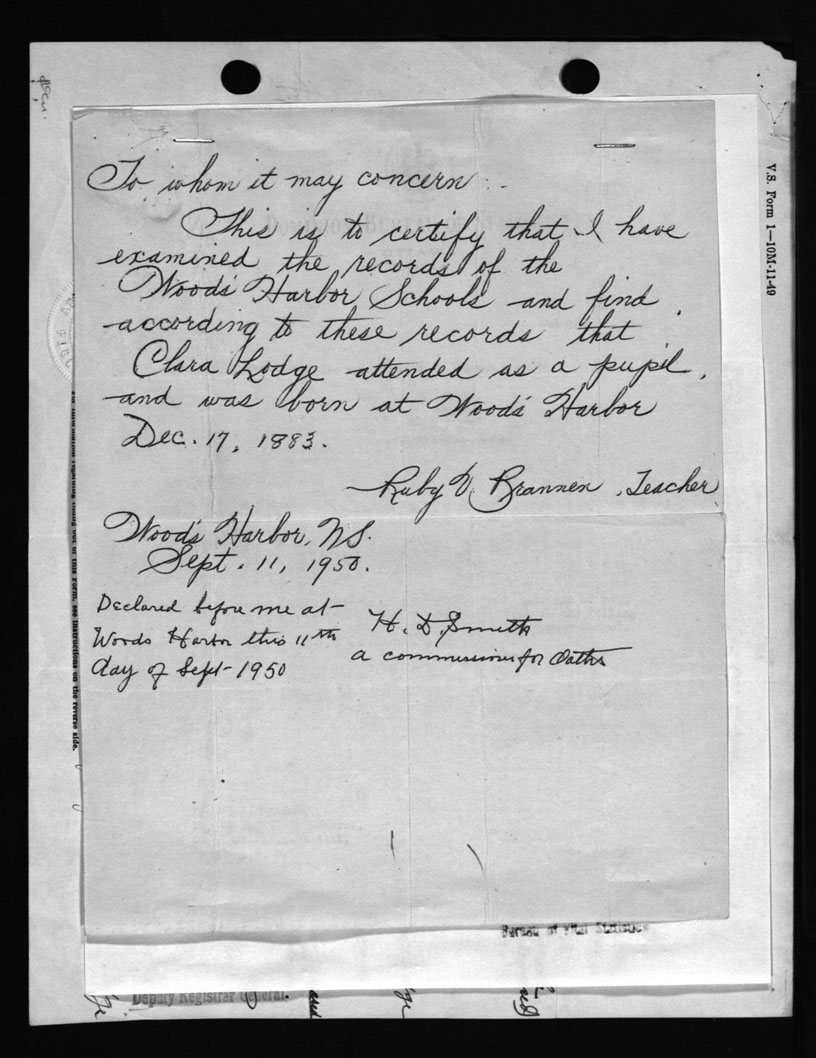 To whom it may concern:-
This is to certify that I have
examined the records of the
Woods Harbor Schools and find
according to these records that
Clara Lodge attended as a pupil,
and was born at Wood's Harbor
Dec. 17, 1883.
Ruby V. Brannen, Teacher
Wood's Harbor, N.S.
Sept. 11, 1950.
Declared before me at
Woods Harbor this 11th
day of Sept 1950
H. D. Smith
a commissioner for Oaths
V.S. Form 1—10M-11-49
of this Form, see instructions on the reverse side.
Bureau of Vital Statistics
Deputy Registrar General.